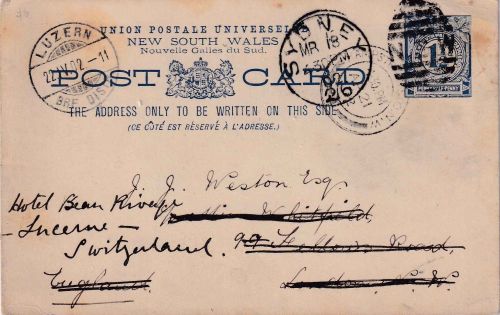 UNION POSTALE UNIVERSELLE
NEW SOUTH WALES
Nouvelle Galles du Sud.
POST CARD
THE ADDRESS ONLY TO BE WRITTEN ON THIS SIDE
(CE CÔTÉ EST RÉSERVÉ À L'ADRESSE.)
LUZERN
02 -11
BRF. DIS
SYDNEY
MR 18
J. J. Weston Esq
Hotel Beau Rivage
- Lucerne -
Switzerland.
Whitfield,
Road,
England
London N.W.